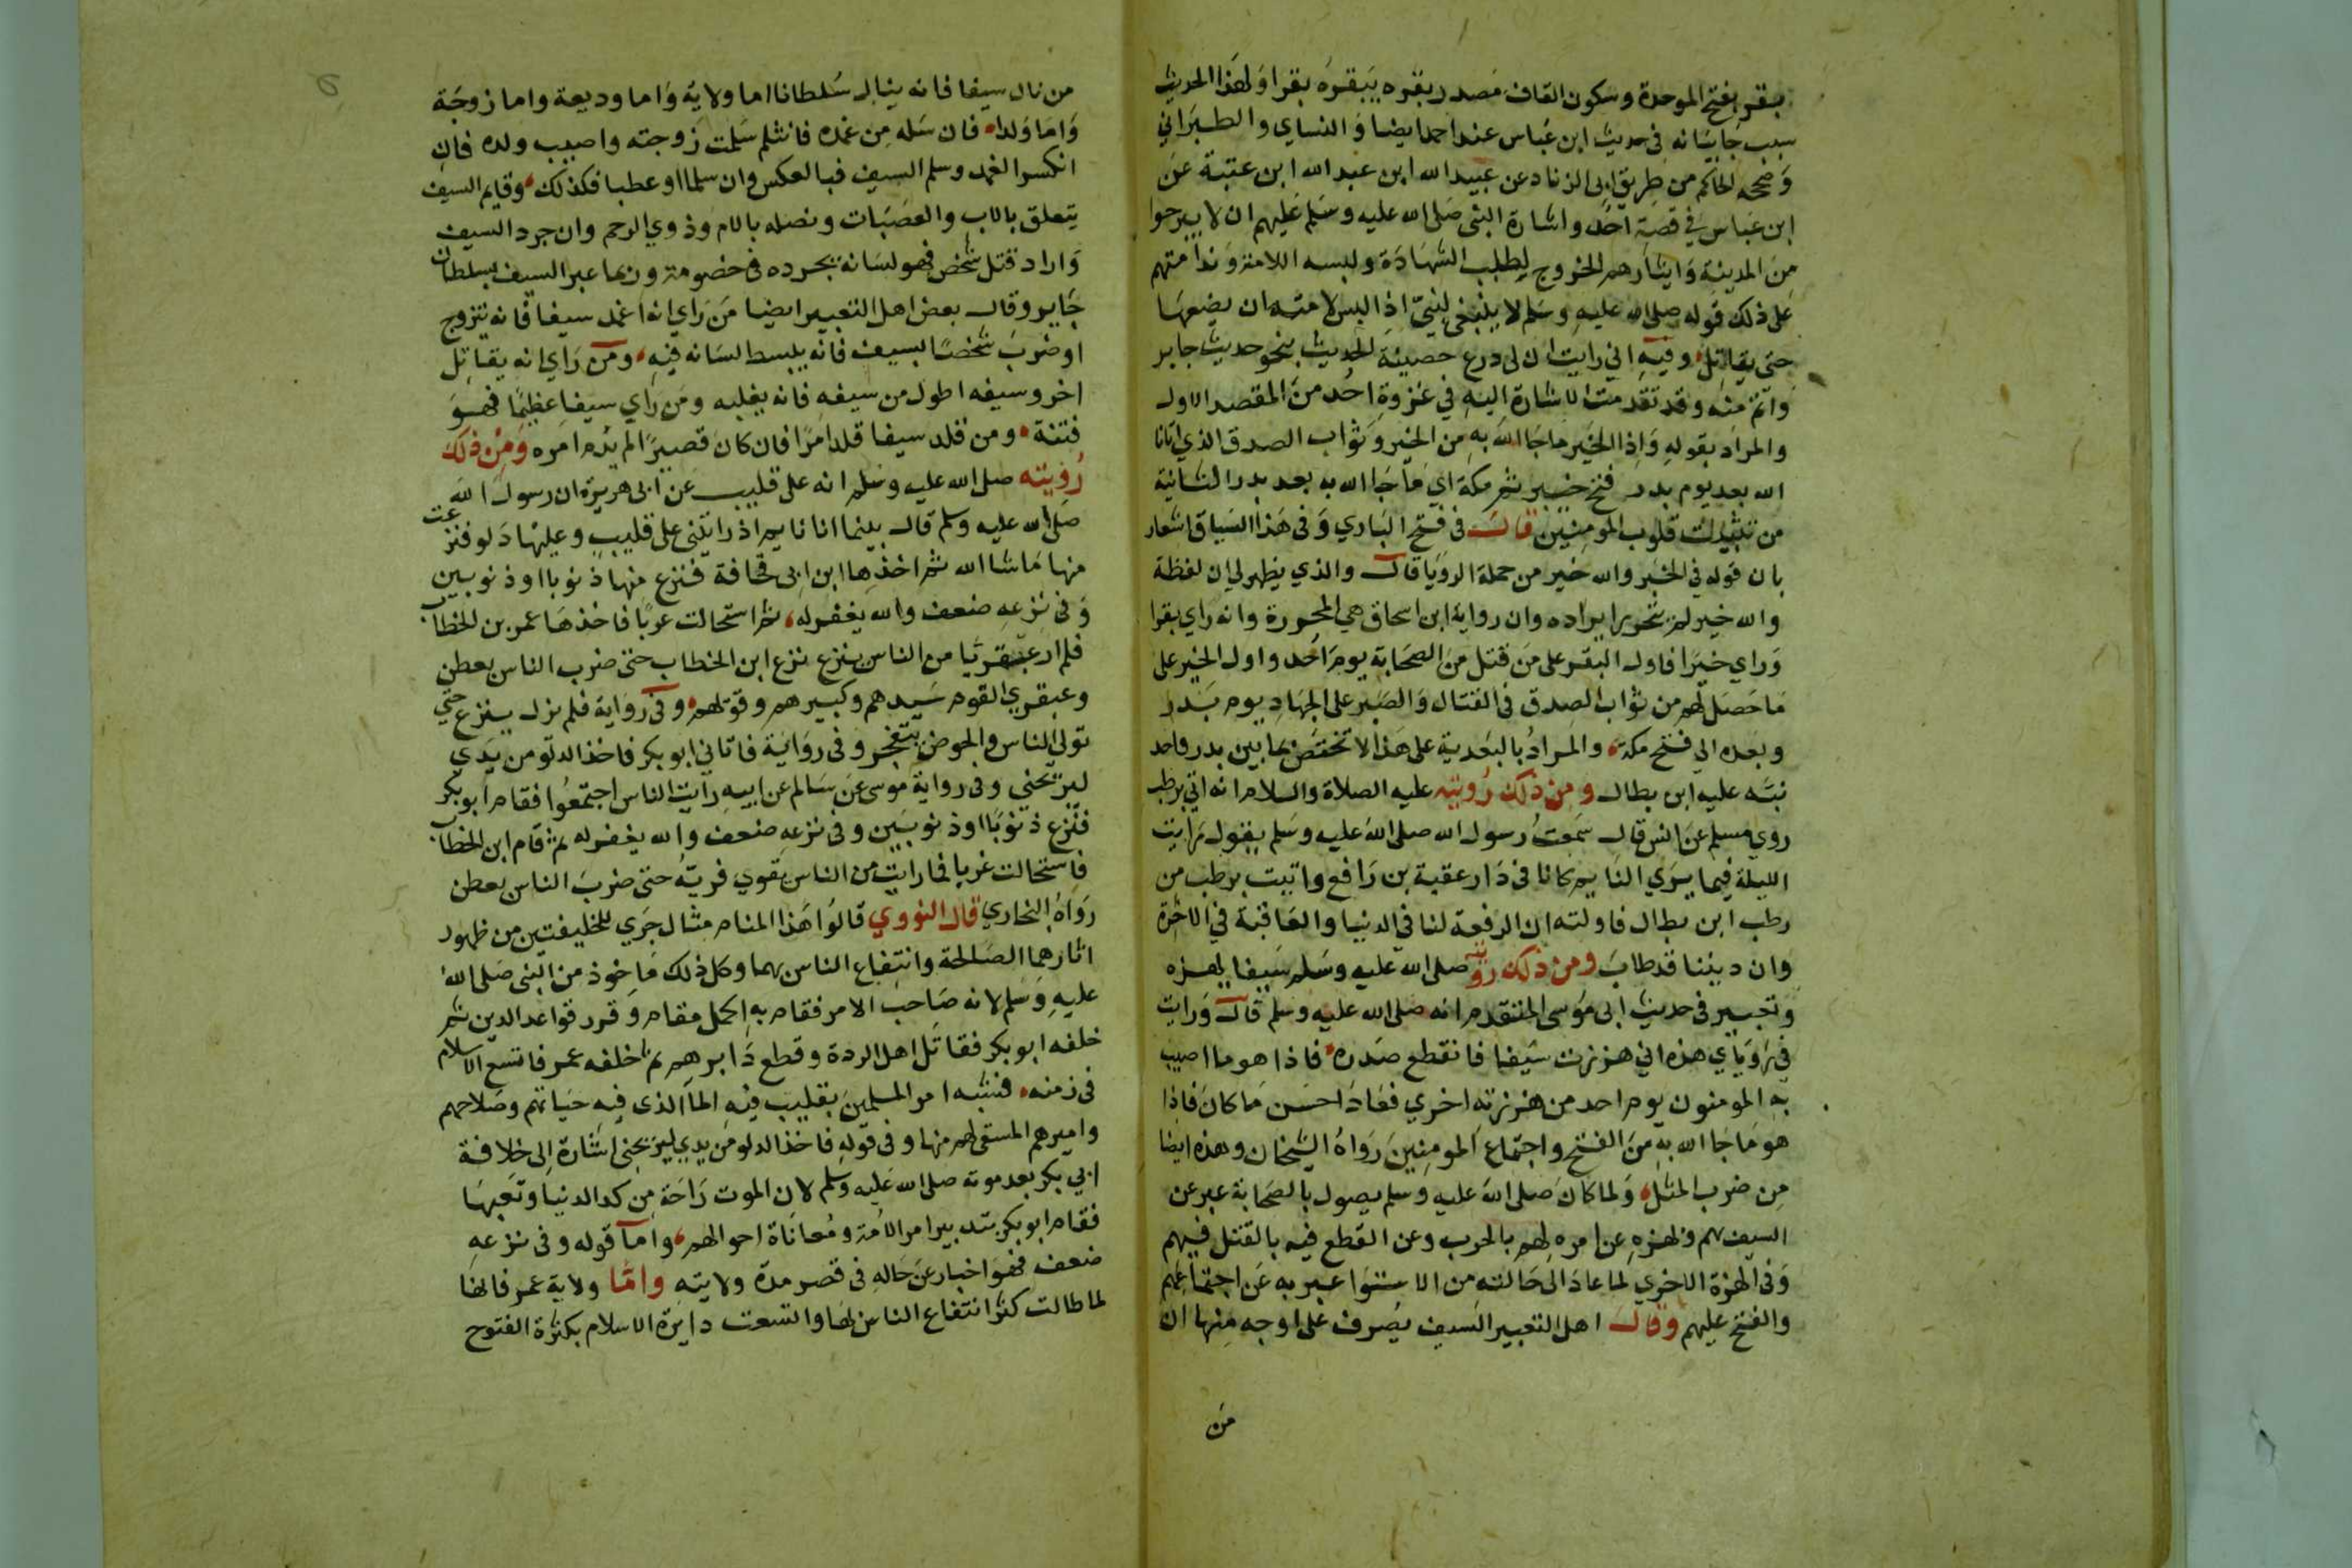 بقر بفتح الموحدة وسكون القاف مصدر بقره يبقره بقرا ولهذا الحديث
سبب جا بيانه في حديث ابن عباس عند احمد ايضا والنساي والطبراني
وصححه الحاكم من طريق ابى الزناد عن عبيد الله ابن عبد الله ابن عتبة عن
ابن عباس في قصة احد واشارة النبى صلى الله عليه وسلم عليهم ان لا يبرحوا
من المدينة وايثارهم الخروج لطلب الشهادة ولبسه اللامة وندامتهم
على ذلك قوله صلى الله عليه وسلم لا ينبغى لنبيّ اذا لبس لامته ان يضعها
حتى يقاتل وفيه انى رايت انى فى درع حصينة الحديث بنحو حديث جابر
واتم منه وقد تقدمت الاشارة اليه في غزوة احد من المقصد الاول
والمراد بقوله واذا الخير ما جا الله به من الخير وثواب الصدق الذي اتانا
الله بعد يوم بدر فتح خيبر ثم مكة اي ما جا الله به بعد بدر الثانية
من تثبيت قلوب المومنين قال في فتح الباري وفى هذا السياق اشعار
بان قوله في الخبر والله خير من جملة الرويا قال والذي يظهر لي ان لفظة
والله خير لم يتحرر ايراده وان رواية ابن اسحاق هي المحررة وانه راي بقرا
وراي خيرا فاول البقر على من قتل من الصحابة يوم احد واول الخير على
ما حصل لهم من ثواب الصدق فى القتال والصبر على الجهاد يوم بدر
وبعده الي فتح مكة والمراد بالبعدية على هذا لا تختص بما بين بدر واحد
نبه عليه ابن بطال ومن ذلك رويته عليه الصلاة والسلام انه اتي برطب
روي مسلم عن انس قال سمعت رسول الله صلى الله عليه وسلم يقول رايت
الليلة فيما يرى النايم كانا فى دار عقبة بن رافع واتيت برطب من
رطب ابن بطال فاولته ان الرفعة لنا في الدنيا والعاقبة في الاخرة
وان ديننا قد طاب ومن ذلك رويته صلى الله عليه وسلم سيفا يهزه
وتعبيره فى حديث ابى موسى المتقدم انه صلى الله عليه وسلم قال ورايت
في روياي هذه اني هززت سيفا فانقطع صدره فاذا هو ما اصيب
به المومنون يوم احد ثم هززته اخري فعاد احسن ما كان فاذا
هو ما جا الله به من الفتح واجتماع المومنين رواه الشيخان وهذه ايضا
من ضرب المثل ولما كان صلى الله عليه وسلم يصول بالصحابة عبر عن
السيف بهم وبهزه عن امره لهم بالحرب وعن القطع فيه بالقتل فيهم
وفى الهزة الاخري لما عاد الى حالته من الاستوا عبر به عن اجتماعهم
والفتح عليهم وقال اهل التعبير السيف يصرف على اوجه منها ان
من
من نال سيفا فانه ينال سلطانا اما ولاية واما وديعة واما زوجة
واما ولدا فان سله من غمده فانثلم سلمت زوجته واصيب ولده فان
انكسر الغمد وسلم السيف فبالعكس وان سلما او عطبا فكذلك وقايم السيف
يتعلق بالاب والعصبات ونصله بالام وذوي الرحم وان جرد السيف
واراد قتل شخص فهو لسانه يجرده فى خصومة وربما عبر السيف بسلطان
جاير وقال بعض اهل التعبير ايضا من راي انه اغمد سيفا فانه يتزوج
او ضرب شخصا بسيف فانه يبسط لسانه فيه ومن راي انه يقاتل
اخر وسيفه اطول من سيفه فانه يغلبه ومن راي سيفا عظيما فهو
فتنة ومن قلد سيفا قلد امرا فان كان قصيرا لم يدم امره ومن ذلك
رويته صلى الله عليه وسلم انه على قليب عن ابى هريرة ان رسول الله
صلى الله عليه وسلم قال بينما انا نايم اذ رايتنى على قليب وعليها دلو فنزعت
منها ماشا الله ثم اخذها ابن ابى قحافة فنزع منها ذنوبا او ذنوبين
وفى نزعه ضعف والله يغفر له ثم استحالت غربا فاخذها عمر بن الخطاب
فلم ار عبقريا من الناس ينزع نزع ابن الخطاب حتى ضرب الناس بعطن
وعبقري القوم سيدهم وكبيرهم وقويهم وفى رواية فلم يزل ينزع حتي
تولى الناس والحوض يتفجر وفى رواية فاتاني ابو بكر فاخذ الدلو من يدي
ليريحنى وفى رواية موسى عن سالم عن ابيه رايت الناس اجتمعوا فقام ابو بكر
فنزع ذنوبا او ذنوبين وفى نزعه ضعف والله يغفر له ثم قام ابن الخطاب
فاستحالت غربا فما رايت من الناس يقوي فريّه حتى ضرب الناس بعطن
رواه البخاري قال النووي قالوا هذا المنام مثال جري للخليفتين من ظهور
اثارهما الصالحة وانتفاع الناس بهما وكل ذلك ماخوذ من النبى صلى الله
عليه وسلم لانه صاحب الامر فقام به اكمل مقام وقرر قواعد الدين ثم
خلفه ابو بكر فقاتل اهل الردة وقطع دابرهم ثم خلفه عمر فاتسع الاسلام
فى زمنه فشبه امر المسلمين بقليب فيه الما الذى فيه حياتهم وصلاحهم
واميرهم المستقى لهم منها وفى قوله فاخذ الدلو من يدي ليريحنى اشارة الى خلافة
ابي بكر بعد موته صلى الله عليه وسلم لان الموت راحة من كد الدنيا وتعبها
فقام ابو بكر بتدبير امر الامة ومعاناة احوالهم واما قوله وفى نزعه
ضعف فهو اخبار عن حاله فى قصر مدة ولايته واما ولاية عمر فانها
لما طالت كثر انتفاع الناس بها واتسعت دايرة الاسلام بكثرة الفتوح